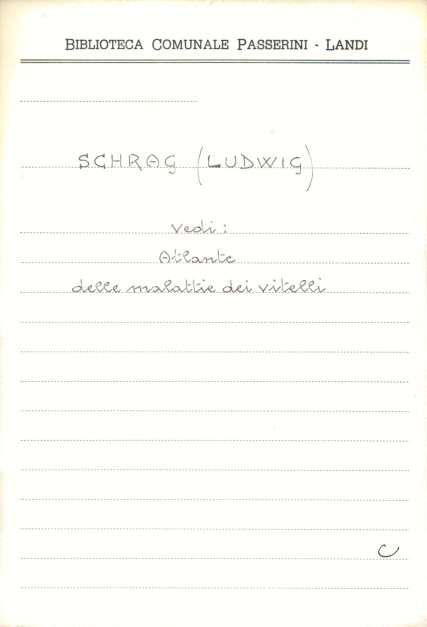 BIBLIOTECA COMUNALE PASSERINI - LANDI
SCHRAG (LUDWIG)
vedi:
Atlante
delle malattie dei vitelli
C